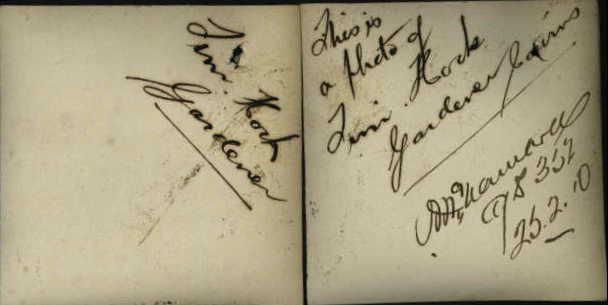 Jim. Hock
Gardener
This is
a Photo of
Jim. Hock
Gardener Cairns
352
25.2.10